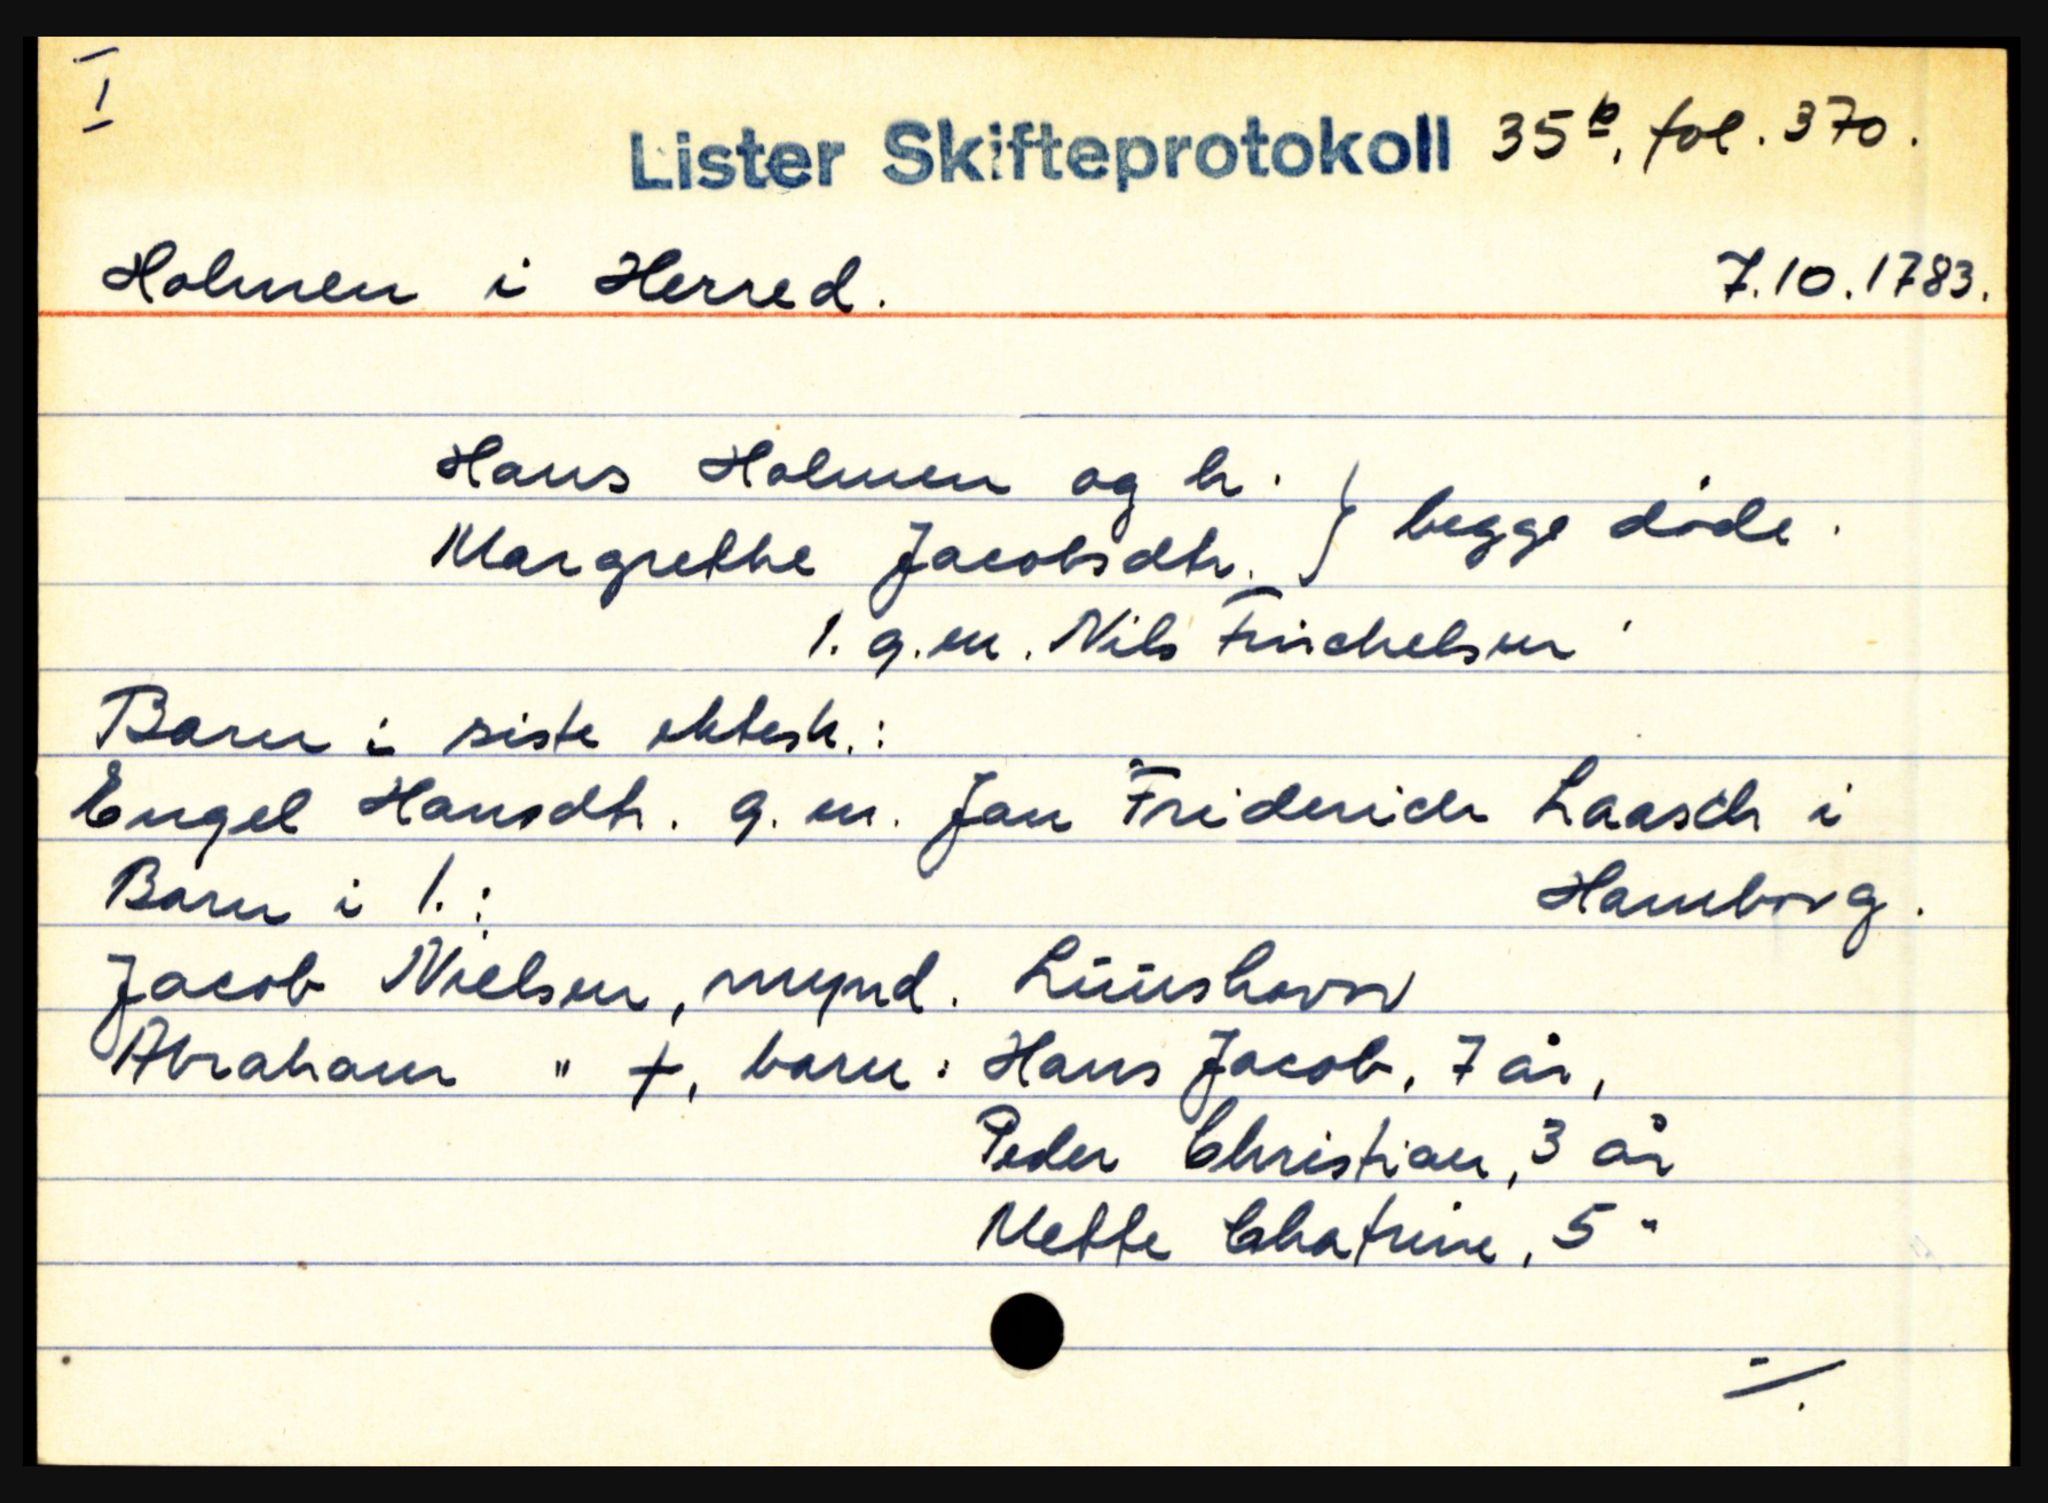 I
Lister Skifteprotokoll 35b, fol. 370.
Holmen i Herred. 7.10.1783.
Hans Holmen og h. } begge døde.
Margrethe Jacobsdtr.
1. g.m. Nils Finchelsen
Barn i siste ektesk.:
Engel Hansdtr. g.m. Jan Friderich Laasch i
Hamborg.
Barn i 1.:
Jacob Nielsen, mynd. Lüüshavn
Abraham " +, barn: Hans Jacob, 7 år,
Peder Christian, 3 år
Mette Chatrine, 5 "